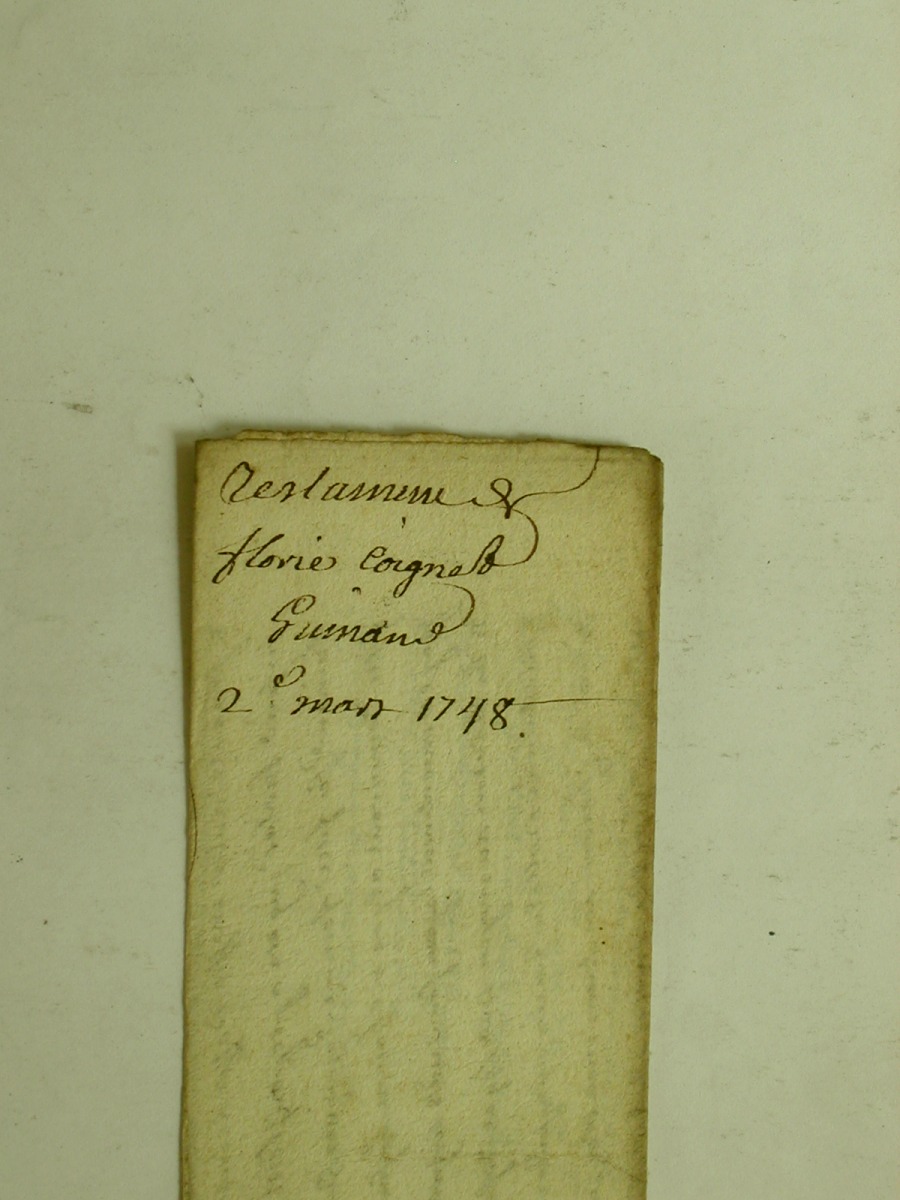 Testament de
florie Coignet
Guinand
2e mars 1748.